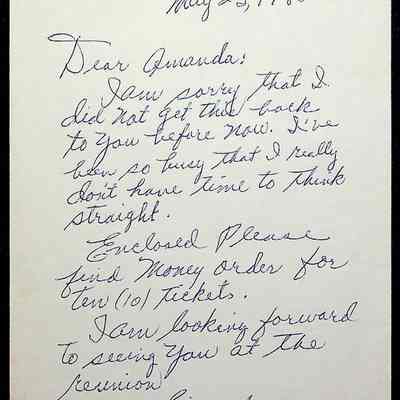 May 23, 19
Dear Amanda:
I am sorry that I
did not get this back
to you before now. I've
been so busy that I really
don't have time to think
straight.
Enclosed Please
find Money order for
ten (10) Tickets.
I am looking forward
to seeing you at the
reunion